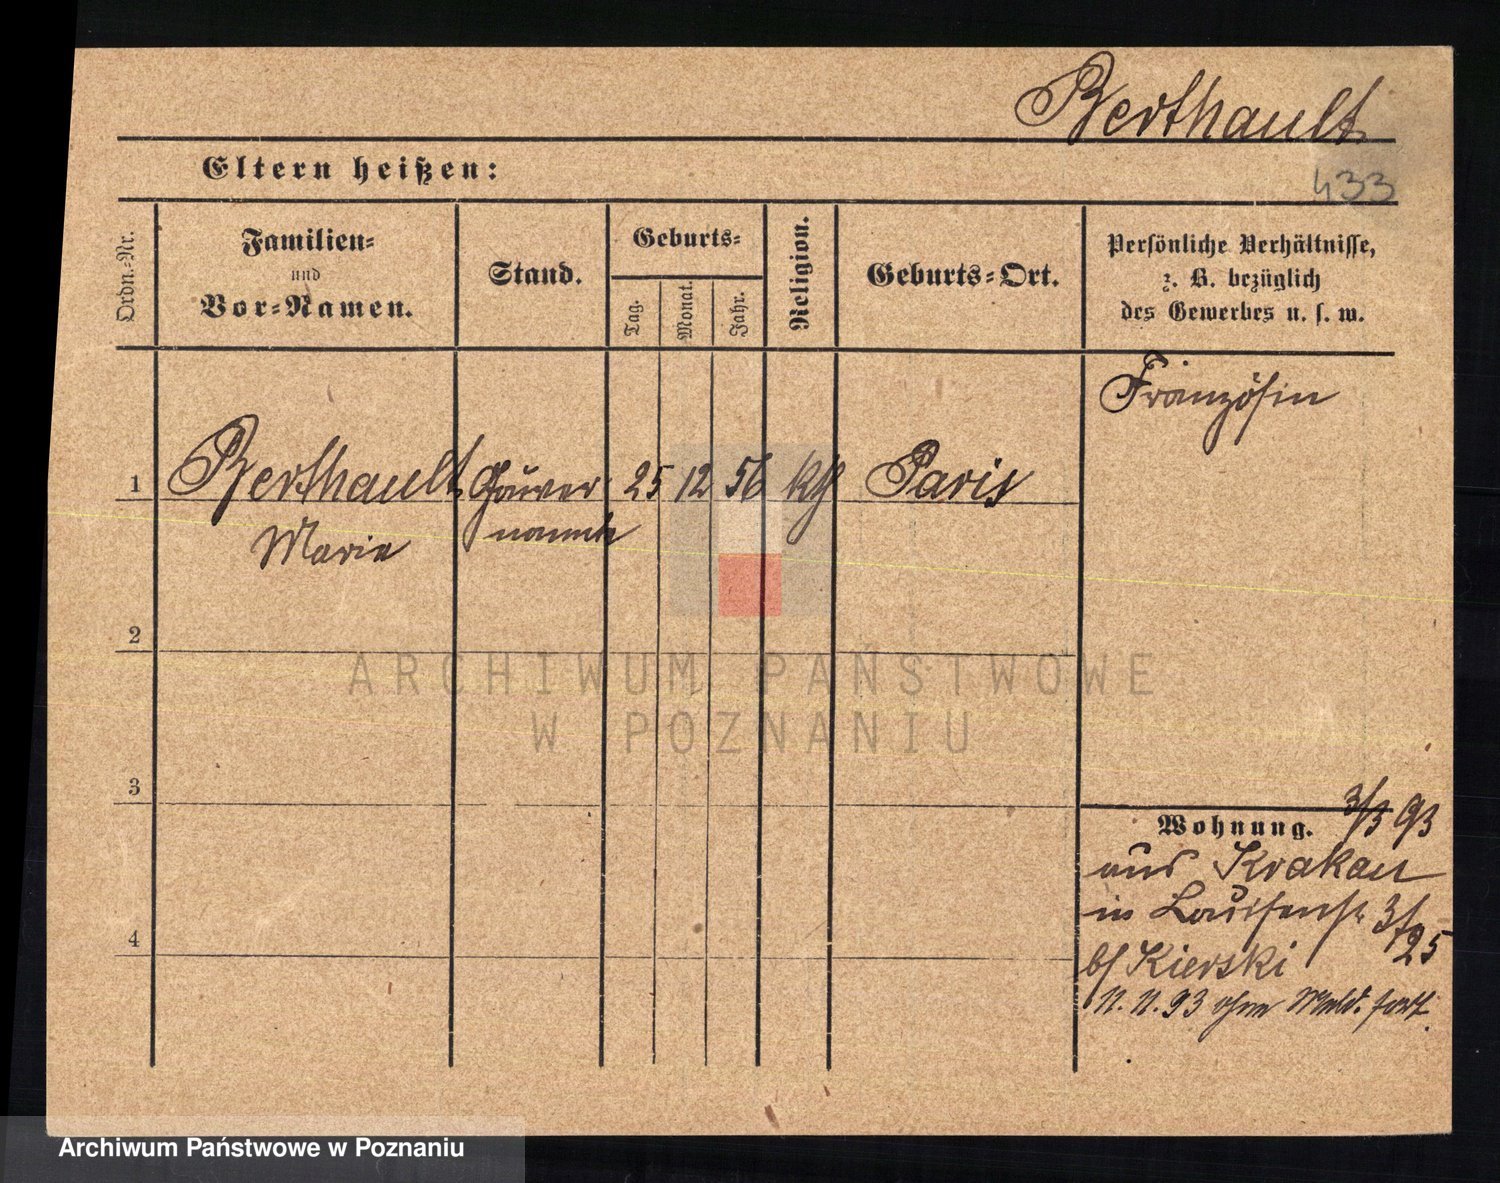 Berthault
433
Eltern heißen:
Ordn.-Nr.
Familien-
und
Vor-Namen.
Stand.
Geburts-
Tag.
Monat.
Jahr.
Religion.
Geburts-Ort.
Persönliche Verhältnisse,
z. B. bezüglich
des Gewerbes u. s. w.
Französin
1
Berthault
Marie
Gouver
nannte
25
12
56
kth
Paris
2
3
4
Wohnung.
3/3 93
aus Krakau
in Louisenstr 3/
25
b/ Kierski
11. 11. 93 ohne Meld. fort.
ARCHIWUM PAŃSTWOWE
W POZNANIU
Archiwum Państwowe w Poznaniu